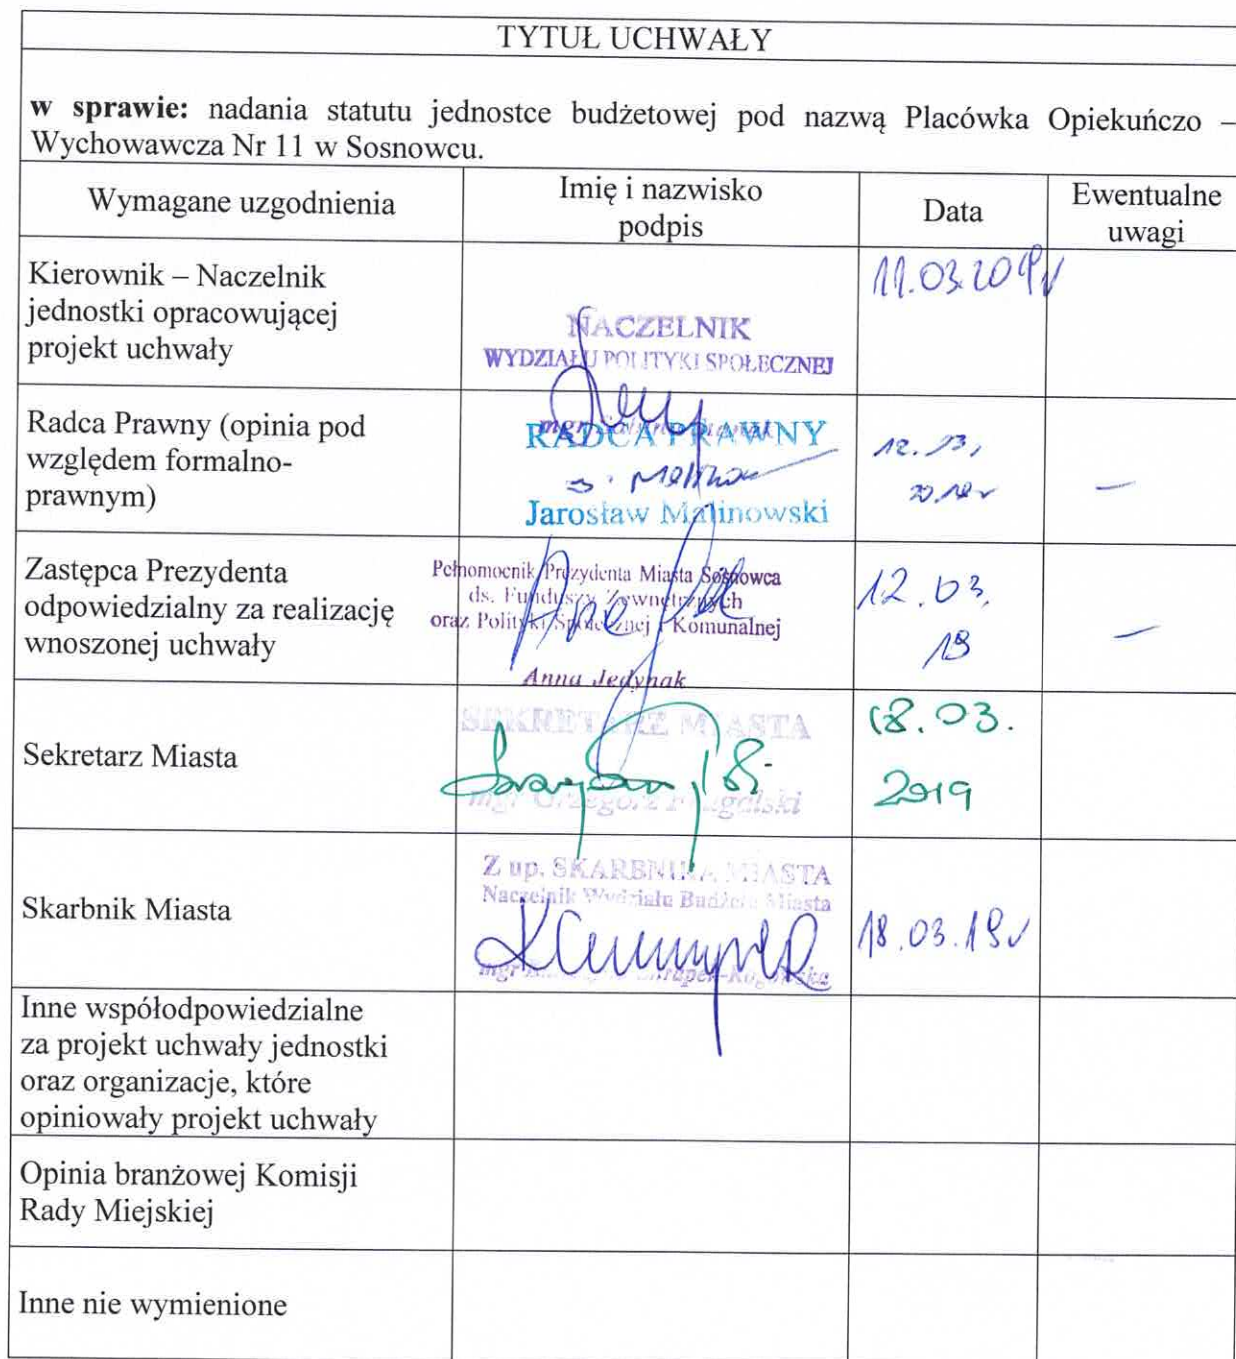 TYTUŁ UCHWAŁY
w sprawie: nadania statutu jednostce budżetowej pod nazwą Placówka Opiekuńczo –
Wychowawcza Nr 11 w Sosnowcu.
Wymagane uzgodnienia
Imię i nazwisko
podpis
Data
Ewentualne
uwagi
Kierownik – Naczelnik
jednostki opracowującej
projekt uchwały
NACZELNIK
WYDZIAŁU POLITYKI SPOŁECZNEJ
mgr
11.03.2019r
Radca Prawny (opinia pod
względem formalno-
prawnym)
RADCA PRAWNY
Jarosław Malinowski
12.
–
Zastępca Prezydenta
odpowiedzialny za realizację
wnoszonej uchwały
Pełnomocnik Prezydenta Miasta Sosnowca
ds. Funduszy Zewnętrznych
oraz Polityki Społecznej i Komunalnej
Anna Jedynak
12.03.
19
–
Sekretarz Miasta
SEKRETARZ MIASTA
mgr Grzegorz
18.03.
2019
Skarbnik Miasta
Z up. SKARBNIKA MIASTA
Naczelnik Wydziału Budżetu Miasta
mgr
18.03.19r
Inne współodpowiedzialne
za projekt uchwały jednostki
oraz organizacje, które
opiniowały projekt uchwały
Opinia branżowej Komisji
Rady Miejskiej
Inne nie wymienione